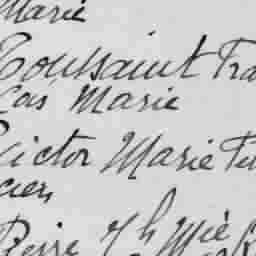 Marie
Toussaint Fra
Cas Marie
Victor Marie Fél
cien
Pierre Jh Mie